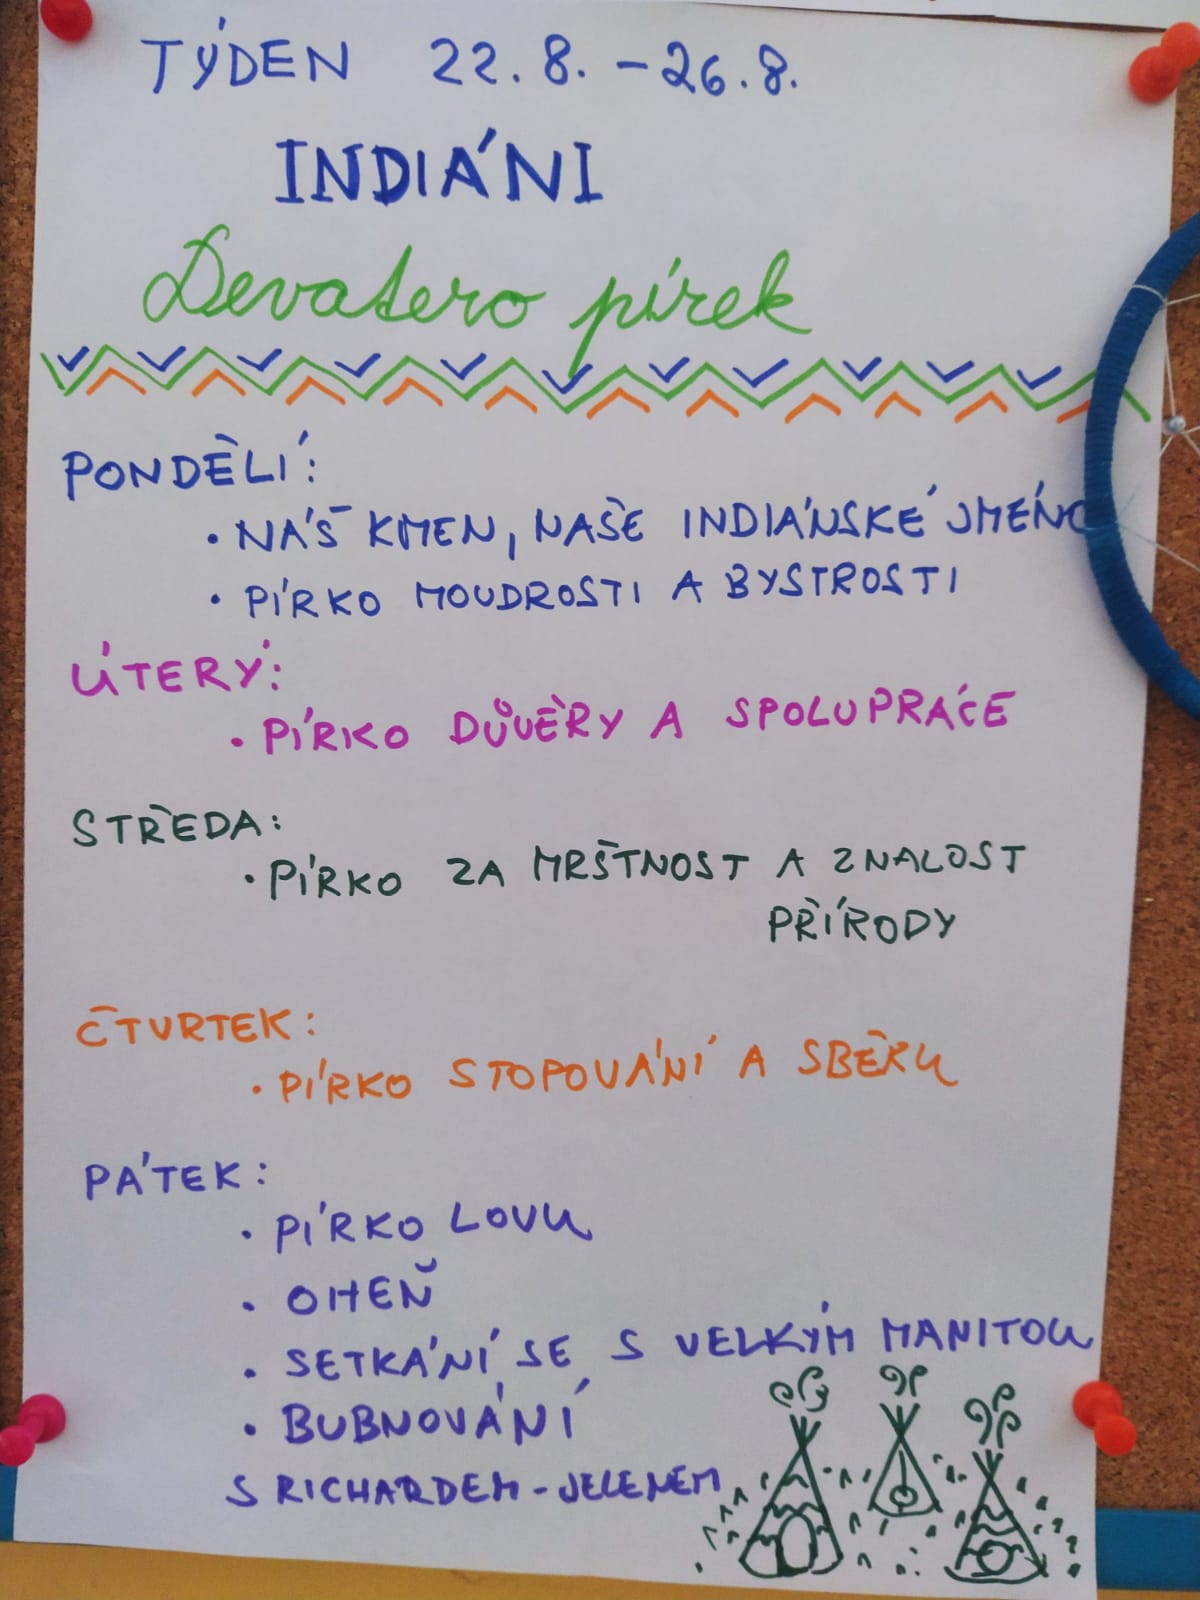 TÝDEN 22.8. - 26.8.
INDIÁNI
Devatero pírek
PONDĚLÍ:
• NÁŠ KMEN, NAŠE INDIÁNSKÉ JMÉNO
• PÍRKO MOUDROSTI A BYSTROSTI
ÚTERÝ:
• PÍRKO DŮVĚRY A SPOLUPRÁCE
STŘEDA:
• PÍRKO ZA MRŠTNOST A ZNALOST
PŘÍRODY
ČTVRTEK:
• PÍRKO STOPOVÁNÍ A SBĚRU
PÁTEK:
• PÍRKO LOVU
• OHEŇ
• SETKÁNÍ SE S VELKÝM MANITOU
• BUBNOVÁNÍ
S RICHARDEM - JELENEM